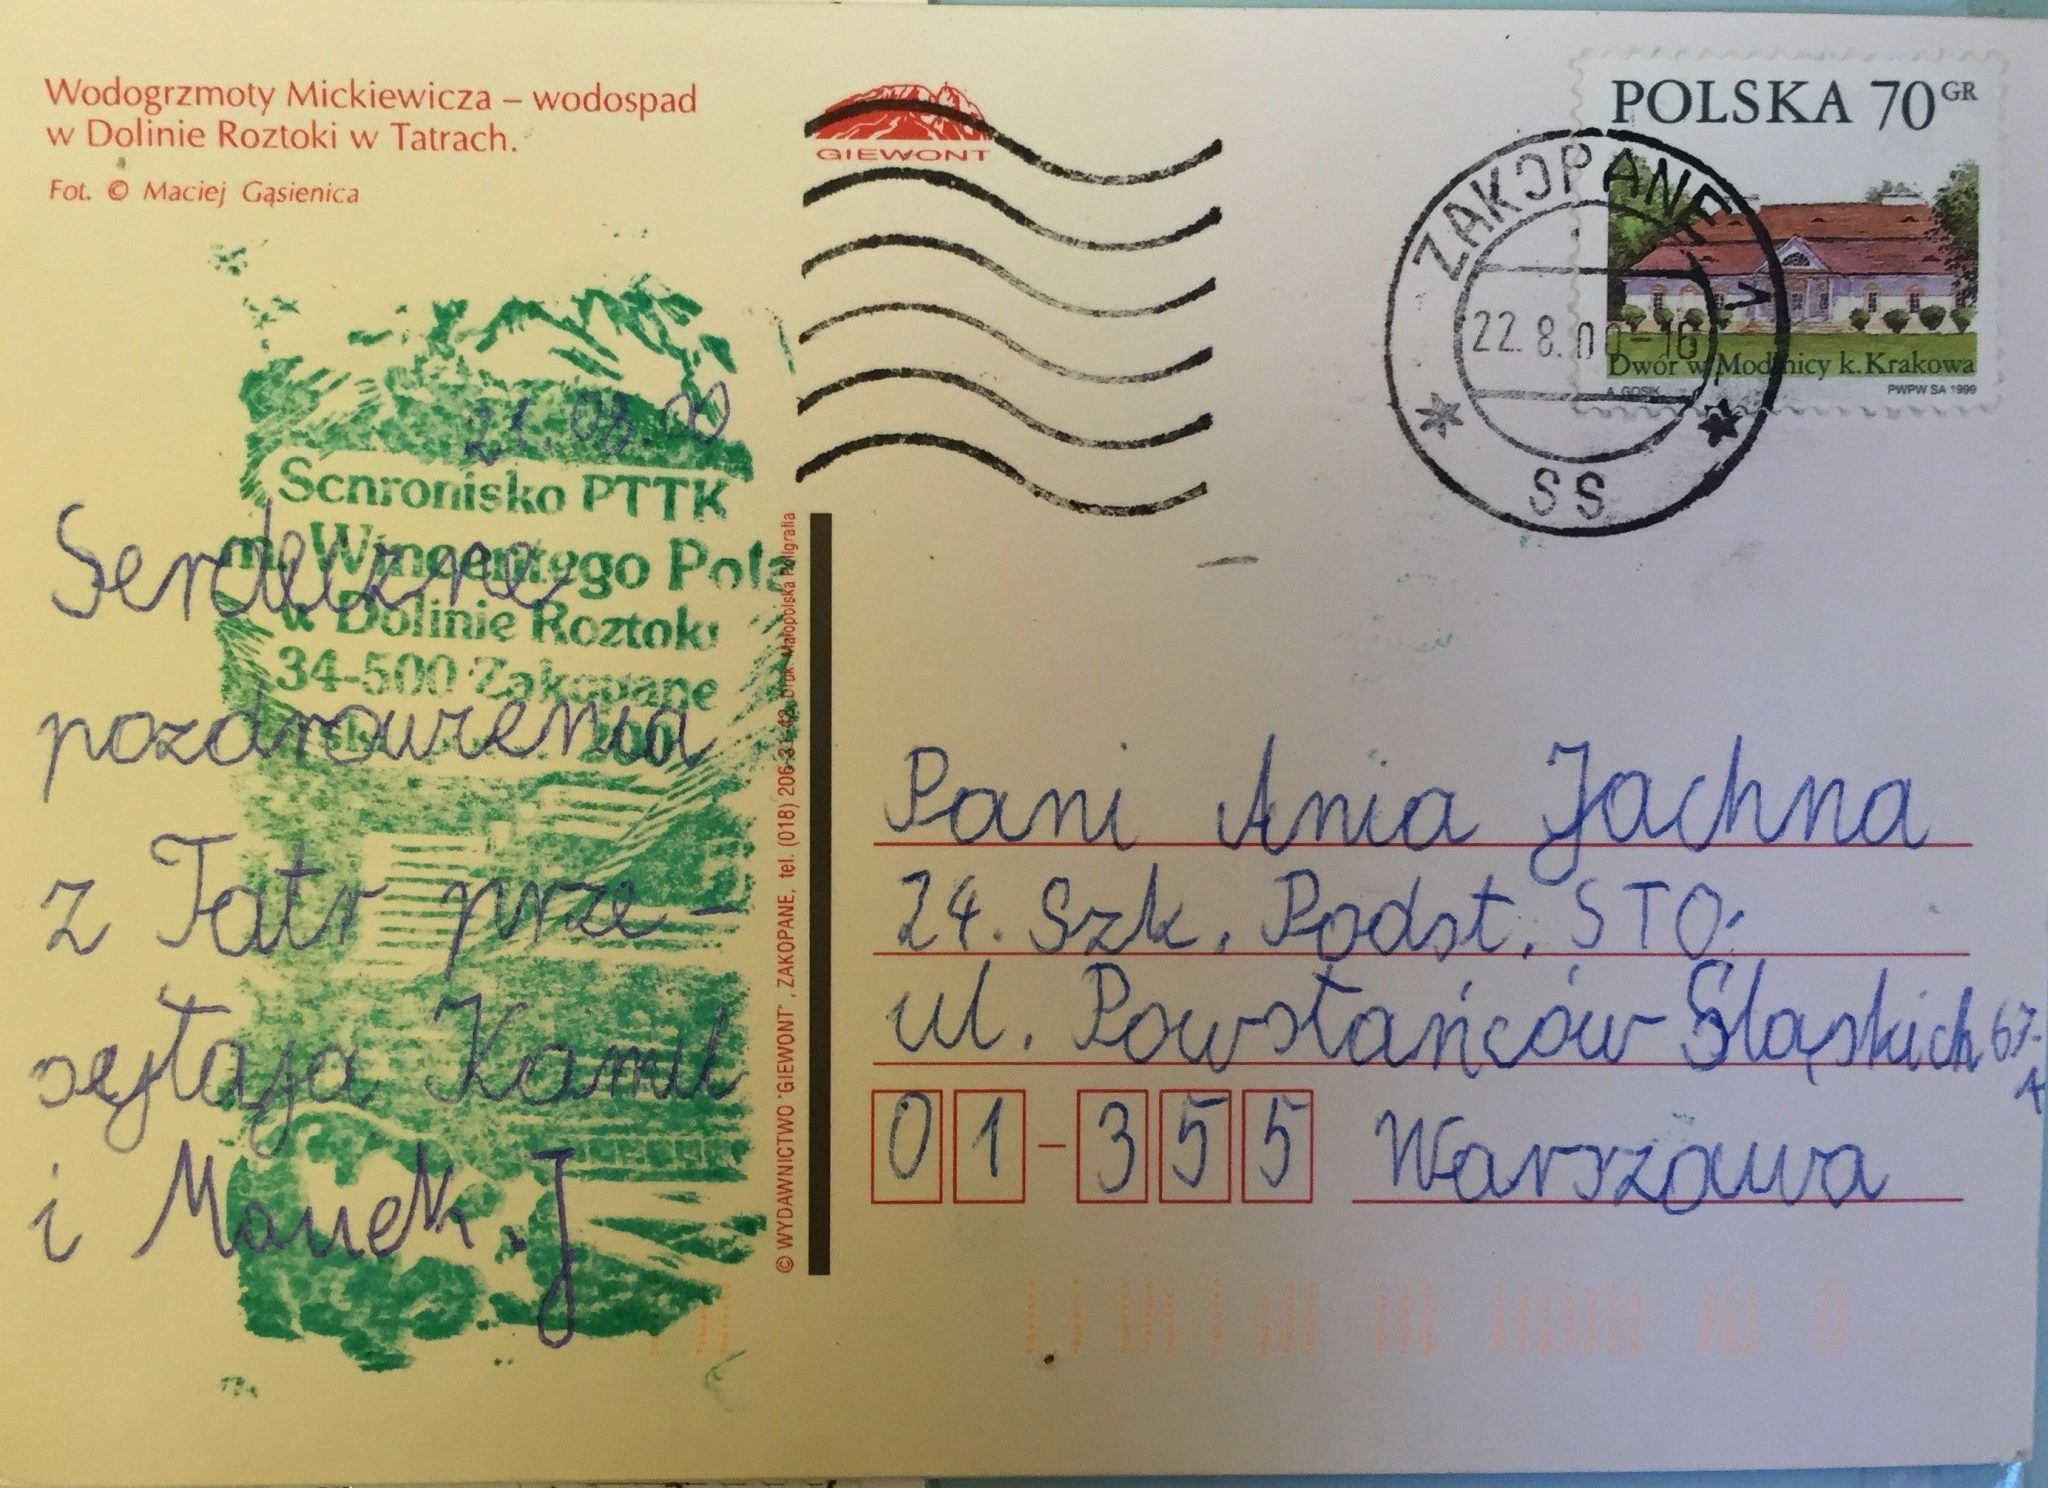 Wodogrzmoty Mickiewicza – wodospad
w Dolinie Roztoki w Tatrach.
Fot. © Maciej Gąsienica
GIEWONT
POLSKA 70 GR
ZAKOPANE
22. 8. 00-16
SS
Dwór w Modlnicy k. Krakowa
A. GOSIK PWPW SA 1999
21.08.00
Schronisko PTTK
im. Wincentego Pola
w Dolinie Roztoki
34-500 Zakopane
Serdeczne
pozdrowienia
z Tatr prze-
syłają Kamil
i Maciek. J
© WYDAWNICTWO "GIEWONT", ZAKOPANE, tel. (018) 206-31-42, Druk: Małopolska Poligrafia
Pani Ania Jachna
24. Szk. Podst. STO.
ul. Powstańców Śląskich 67-
A
01-355 Warszawa